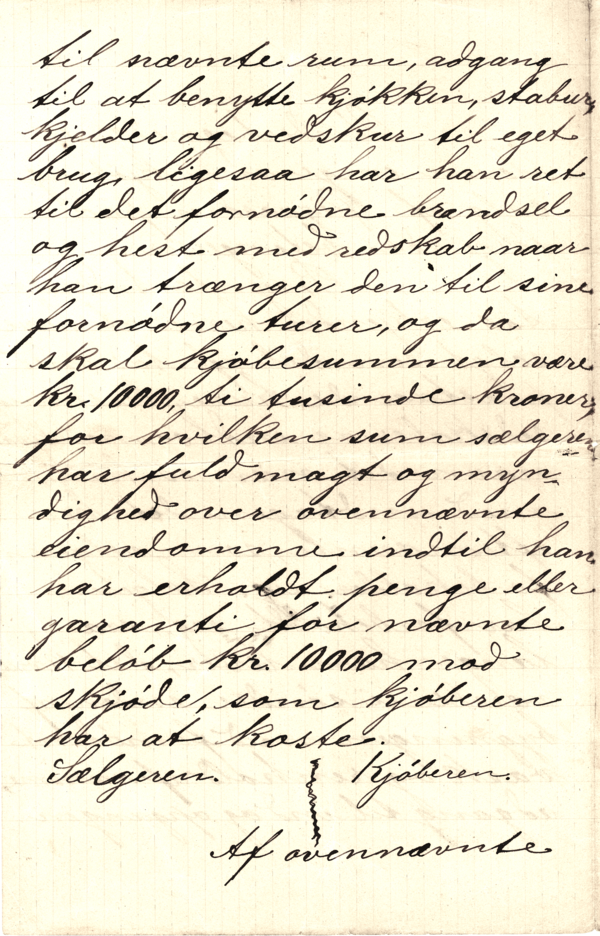 til nævnte rum, adgang
til at benytte kjøkken, stabur,
kjelder og vedskur til eget
brug, ligesaa har han ret
til det fornødne brændsel
og hest med redskab naar
han trænger den til sine
fornødne turer, og da
skal kjøbesummen være
kr. 10000, ti tusinde kroner,
for hvilken sum sælgeren
har fuld magt og myn-
dighed over ovennævnte
eiendomme indtil han
har erholdt penge eller
garanti for nævnte
beløb kr. 10000 mod
skjøde, som kjøberen
har at koste.
Sælgeren. Kjøberen.
Af ovennævnte